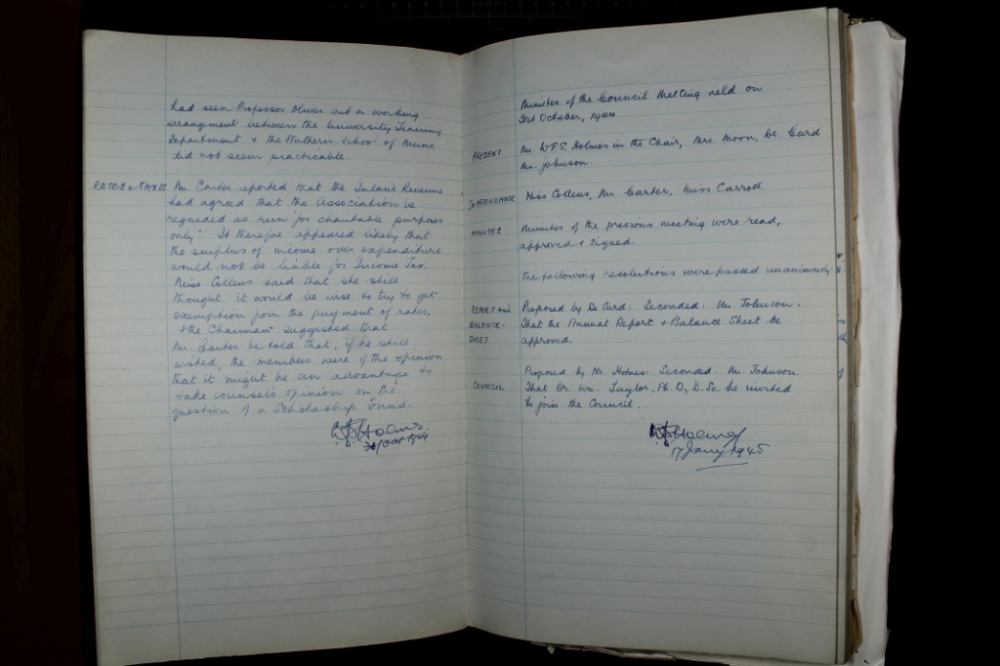 had seen Professor Oliver but a working
arrangement between the University Training
Department & the Matthay School of Music
did not seem practicable.
RATES & TAXES Mr. Carter reported that the Inland Revenue
had agreed that the Association be
regarded as run for charitable purposes
only. It therefore appeared likely that
the surplus of income over expenditure
would not be liable for Income Tax.
Miss Collens said that she still
thought it would be wise to try to get
exemption from the payment of rates,
& the Chairman suggested that
Mr. Carter be told that, if he still
wished, the members were of the opinion
that it might be an advantage to
take counsel's opinion on the
question of a Scholarship Fund.
W.F.S. Holmes.
31 Oct 1944
Minutes of the Council Meeting held on
31st October, 1944
PRESENT Mr. W.F.S. Holmes in the Chair, Mrs. Moon, Dr. Curd
Mr. Johnson.
IN ATTENDANCE Miss Collens, Mr. Carter, Miss Carroll
MINUTES Minutes of the previous meeting were read,
approved & signed.
The following resolutions were passed unanimously:
REPORT AND Proposed by Dr Curd: Seconded: Mr. Johnson.
BALANCE- That the Annual Report & Balance Sheet be
SHEET approved.
Proposed by Mr. Holmes: Seconded: Mr. Johnson
COUNCIL That Dr. Wm. Taylor, Ph. D, D. Sc. be invited
to join the Council.
W.F.S. Holmes
17 Jany 1945